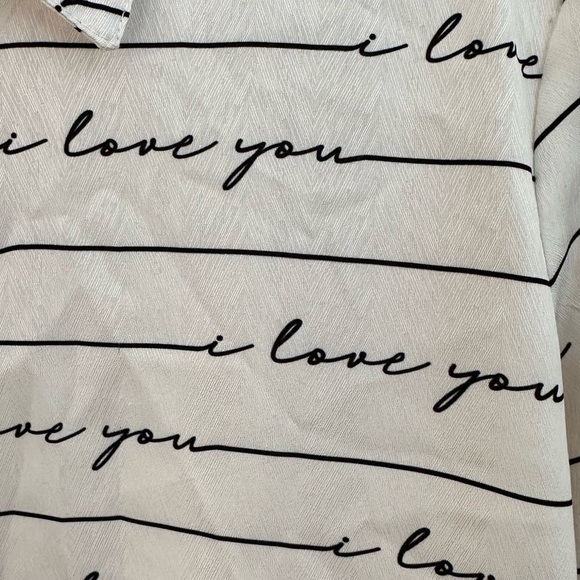 i love
i love you
i love you
ve you
i lo